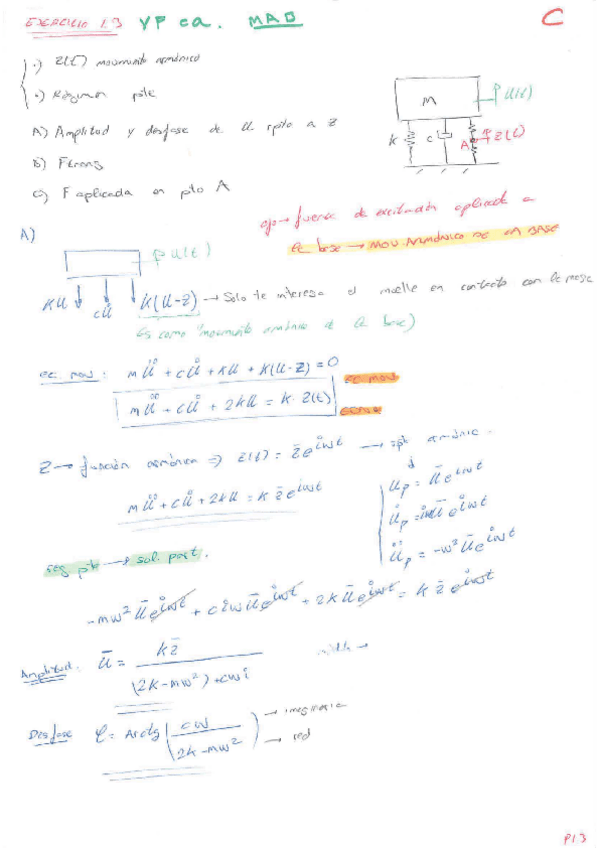 EJERCICIO 1.3 YF ca. MAB
C
·) Z(t) movimiento armónico
·) Régimen pte
A) Amplitud y desfase de U rpto a Z
B) Ftrans
C) F aplicada en pto A
M
U(t)
K
C
A
Z(t)
ojo → fuerza de excitación aplicada a
la base → MOV. ARMÓNICO DE LA BASE
A)
U(t)
KU
cu̇
K(U-Z) → Solo te interesa el muelle en contacto con la
Es como "movimiento armónico de la base)
ec. mov: mü + cu̇ + KU + K(U-Z) = 0
ec mov
mü + cu̇ + 2KU = K · Z(t)
Z → función armónica ⇒ Z(t) = z̄e^{iωt} → armónic.
mü + cu̇ + 2KU = K z̄e^{iωt}
U_p = ūe^{iωt}
u̇_p = iωūe^{iωt}
ü_p = -ω²ūe^{iωt}
reg pte → sol. part.
-mω²ūe^{iωt} + ciωūe^{iωt} + 2Kūe^{iωt} = K z̄e^{iωt}
Amplitud: ū = Kz̄ / (2K-mω²)+cωi
Desfase φ = Arctg (cω / 2K-mω²) → imaginaria
→ real
P1.3